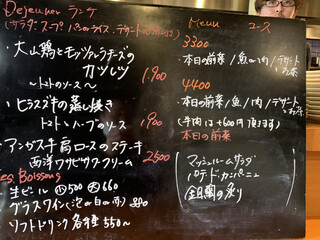 Dejeuner ランチ
(サラダ・スープ・パンorライス・デザート
・大山鶏とモッツァレラチーズの
カツレツ
〜トマトのソース〜 1.900
・ヒラスズキの蒸し焼き
トマトとハーブのソース 1.900
・アンガス牛肩ロースのステーキ
西洋ワサビクリーム 2500
Les Boissons
生ビール 小500 大660
グラスワイン(泡or白or赤)
ソフトドリンク各種 550〜
Menu コース
3300
・本日の前菜/魚or肉/デザート
お茶
4400
・本日の前菜/魚/肉/デザート
お茶
(牛肉は+600円頂きます)
本日の前菜
マッシュルームサラダ
パテドカンパーニュ
金目鯛の炙り